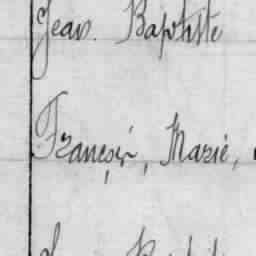 Jean. Baptiste
François, Marie,